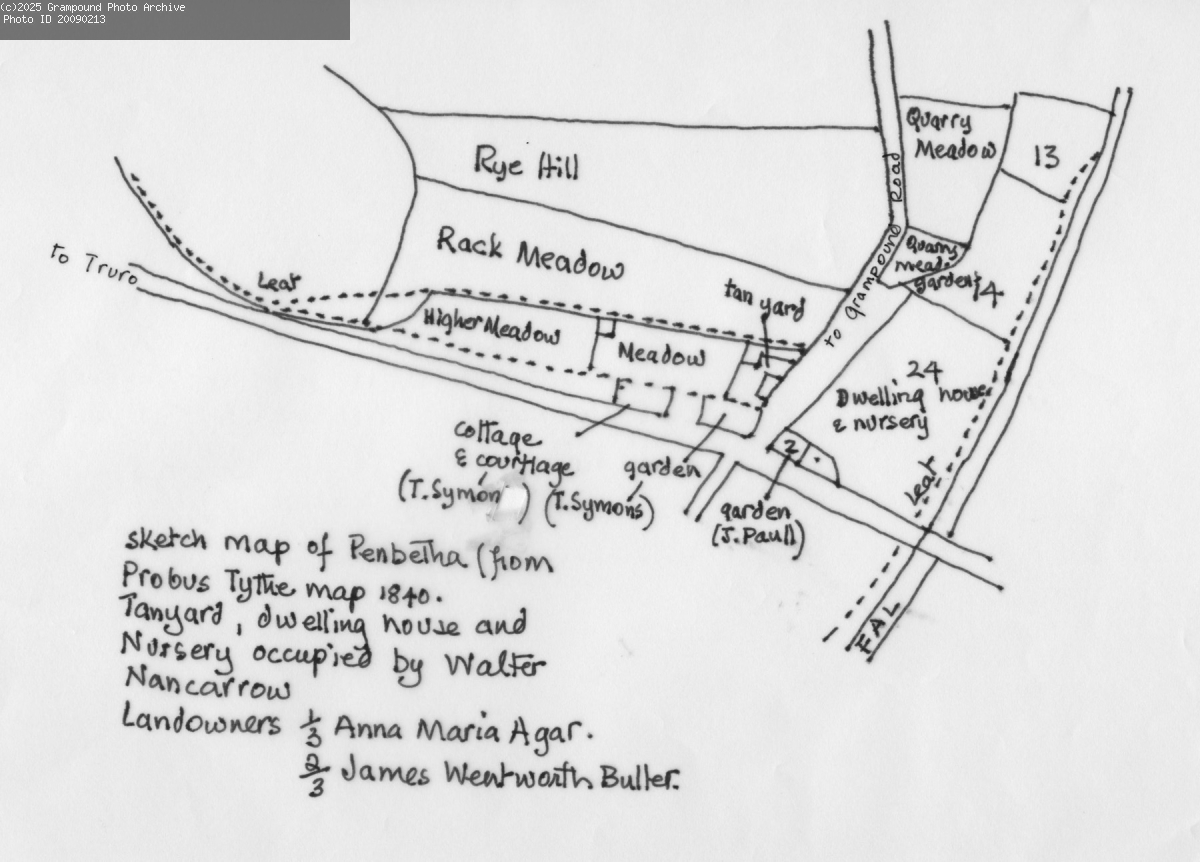 (c)2025 Grampound Photo Archive
Photo ID 20090213
Quarry
Meadow
13
Rye Hill
Road
Rack Meadow
Quarry
mead.
garden
14
to Grampound
to Truro
Leat
tan yard
Higher Meadow
Meadow
24
Dwelling house
& nursery
cottage
& courtlage
(T. Symon )
garden
(T. Symons)
2
garden
(J. Paull)
Leat
FAL
sketch map of Penbetha (from
Probus Tythe map 1840.
Tanyard, dwelling house and
Nursery occupied by Walter
Nancarrow
Landowners 1/3 Anna Maria Agar.
2/3 James Wentworth Buller.